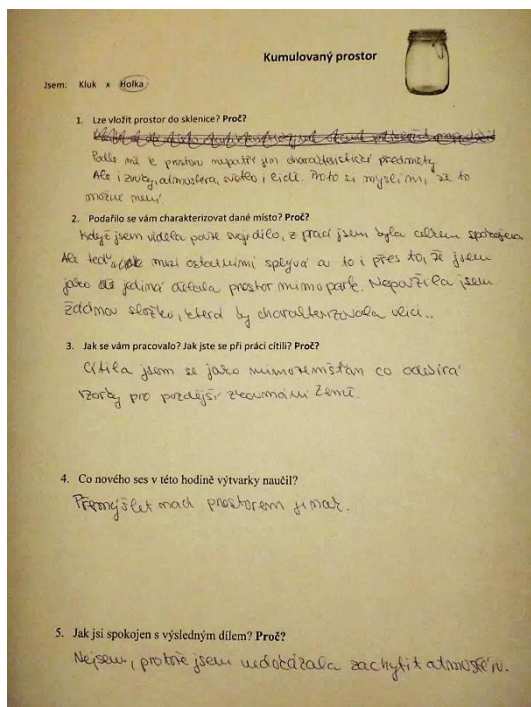 Kumulovaný prostor
Jsem: Kluk x Holka
1. Lze vložit prostor do sklenice? Proč?
Podle mě k prostoru nepatří jen charakteristické předměty.
Ale i zvuky, atmosféra, světlo, i lidé. Proto si myslím, že to
možné není.
2. Podařilo se vám charakterizovat dané místo? Proč?
Když jsem viděla pouze svoje dílo, z prací jsem byla celkem spokojena
Ale teď mezi ostatními splývá a to i přes to, že jsem
jako jediná dělala prostor mimo park. Nepoužila jsem
žádnou složku, která by charakterizovala ulici..
3. Jak se vám pracovalo? Jak jste se při práci cítili? Proč?
Cítila jsem se jako mimozemšťan co odebírá
vzorky pro pozdější zkoumání Země.
4. Co nového ses v této hodině výtvarky naučil?
Přemýšlet nad prostorem jinak.
5. Jak jsi spokojen s výsledným dílem? Proč?
Nejsem, protože jsem nedokázala zachytit atmosféru.